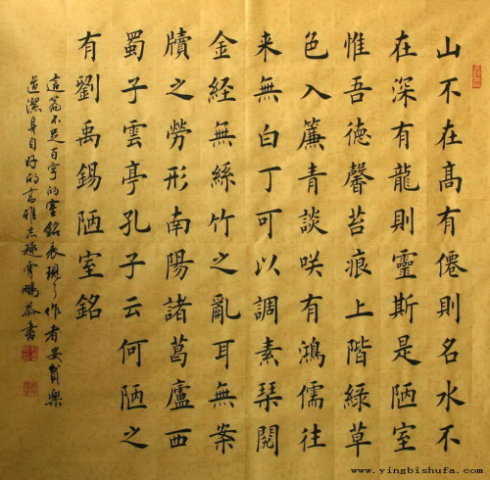 山不在髙有僊則名水不
在深有龍則靈斯是陋室
惟吾徳馨苔痕上階緑草
色入簾青談咲有鴻儒往
来無白丁可以調素琹閲
金経無絲竹之亂耳無案
牘之勞形南陽諸葛廬西
蜀子雲亭孔子云何陋之
有劉禹錫陋室銘
這篇不足百字的室銘表現了作者安貧樂
道潔身自好的高雅志趣鵬恭書
www.yingbishufa.com